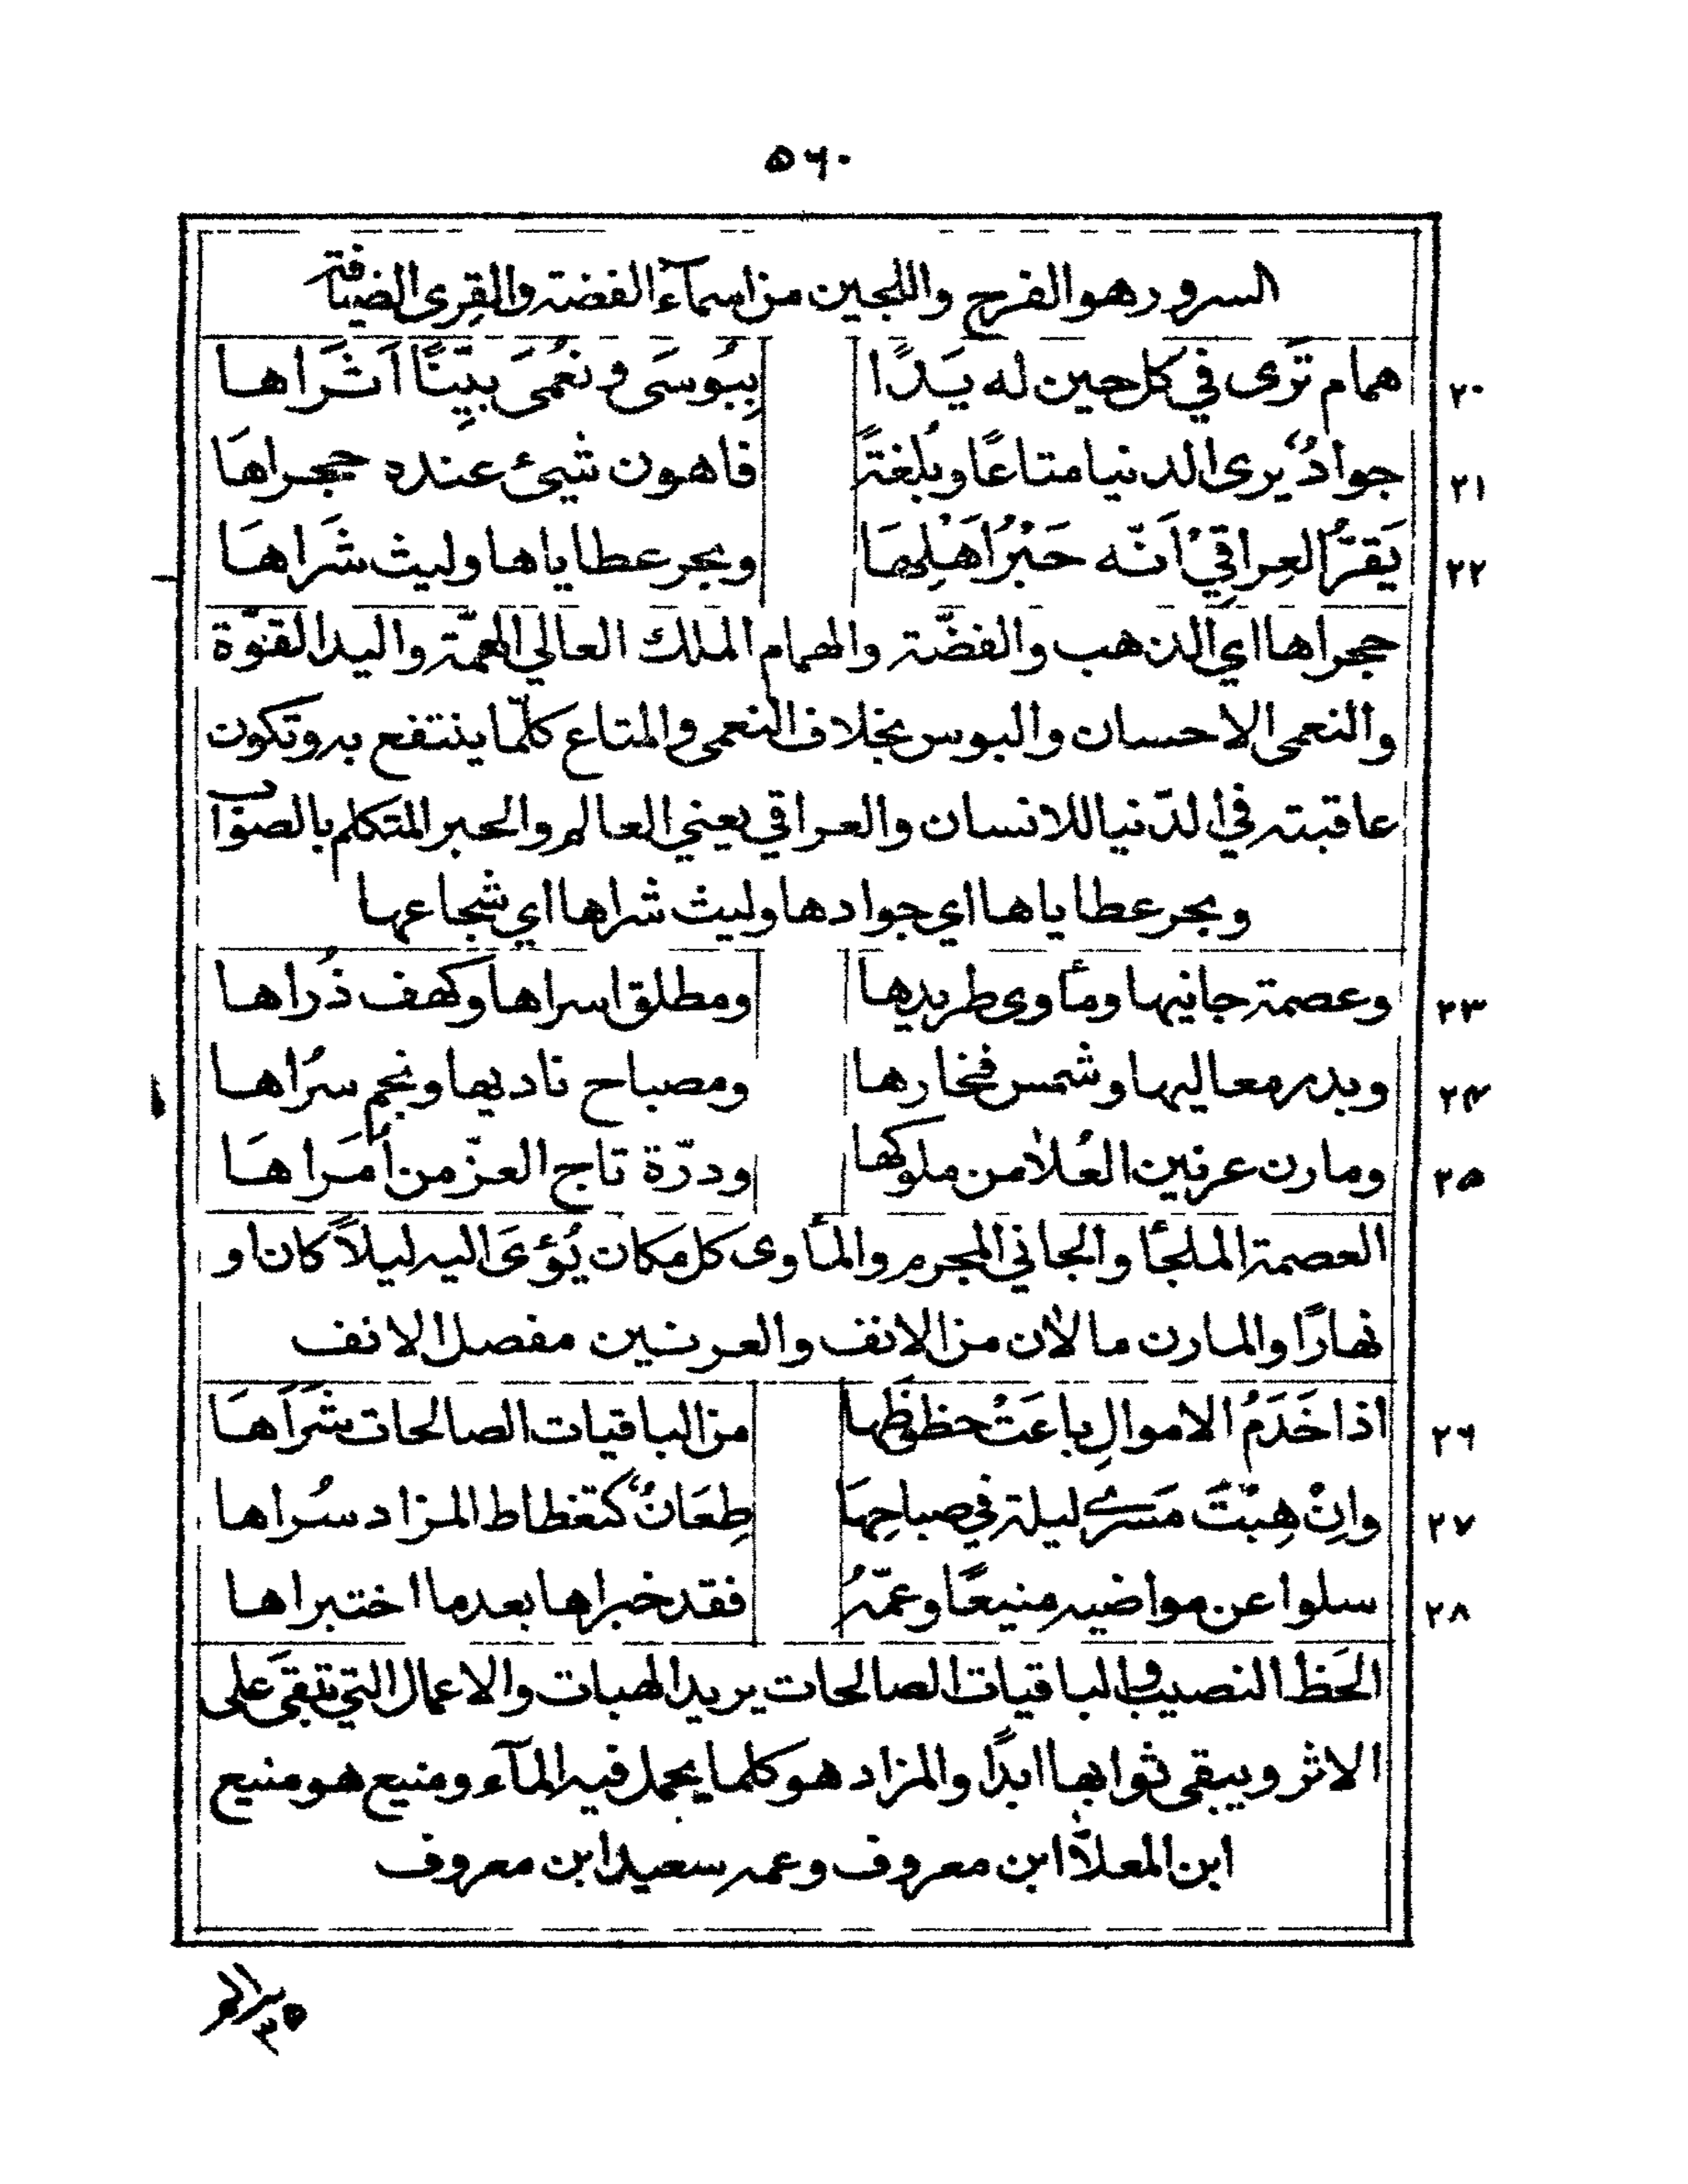 ٥٦٠
السرور هو الفرح واللجين من اسمآء الفضة والقِرى الضيافة
٢٠ همام تَرَى في كل حين له يَدًا بِبُوسَى ونُعْمَى بيِّنًا اَثَرَاها
٢١ جوادٌ يرى الدنيا متاعًا وبُلغةً فاهون شيئ عنده حجراهَا
٢٢ يَقرّ العِراقيْ اَنّه حَبْرُ اَهْلِهَا وبحر عطاياها وليث شَراهَا
حجراها اي الذهب والفضّة والهمام الملك العالي الهمّة واليد القوّة
والنعمى الاحسان والبوس بخلاف النعمى والمتاع كلّما ينتفع به وتكون
عاقبته في الدّنيا للانسان والعراقي يعني العالم والحبر المتكلم بالصواب
وبحر عطاياها اي جوادها وليث شراها اي شجاعها
٢٣ وعصمة جانيها ومأوى طريدها ومطلق اسراها وكهف ذُراها
٢٤ وبدر معاليها وشمس فخارها ومصباح ناديها ونجم سُراها
٢٥ ومارن عرنين العُلا من ملوكها ودرّة تاج العزّ من اُمَراهَا
العصمة الملجأ والجاني المجرم والمأوى كل مكان يُؤوَى اليه ليلاً كان او
نهارًا والمارن ما لان من الانف والعرنين مفصل الانف
٢٦ اذا خَدَمُ الاموالِ باعَتْ حظوظَها من الباقيات الصالحات شَرَاهَا
٢٧ وانْ هِبْتَ مَسْرى ليلة في صباحِهَا طِعَانٌ كتغطاط المزاد سُراها
٢٨ سلوا عن مواضيه منيعًا وعمّهُ فقد خبراها بعدما اختبراها
الحَظ النصيب والباقيات الصالحات يريد الهبات والاعمال التي تبقَى على
الاثر ويبقى ثوابها ابدًا والمزاد هو كلما يحمل فيه المآء ومنيع هو منيع
ابن المعلاّ ابن معروف وعمه سعيد ابن معروف